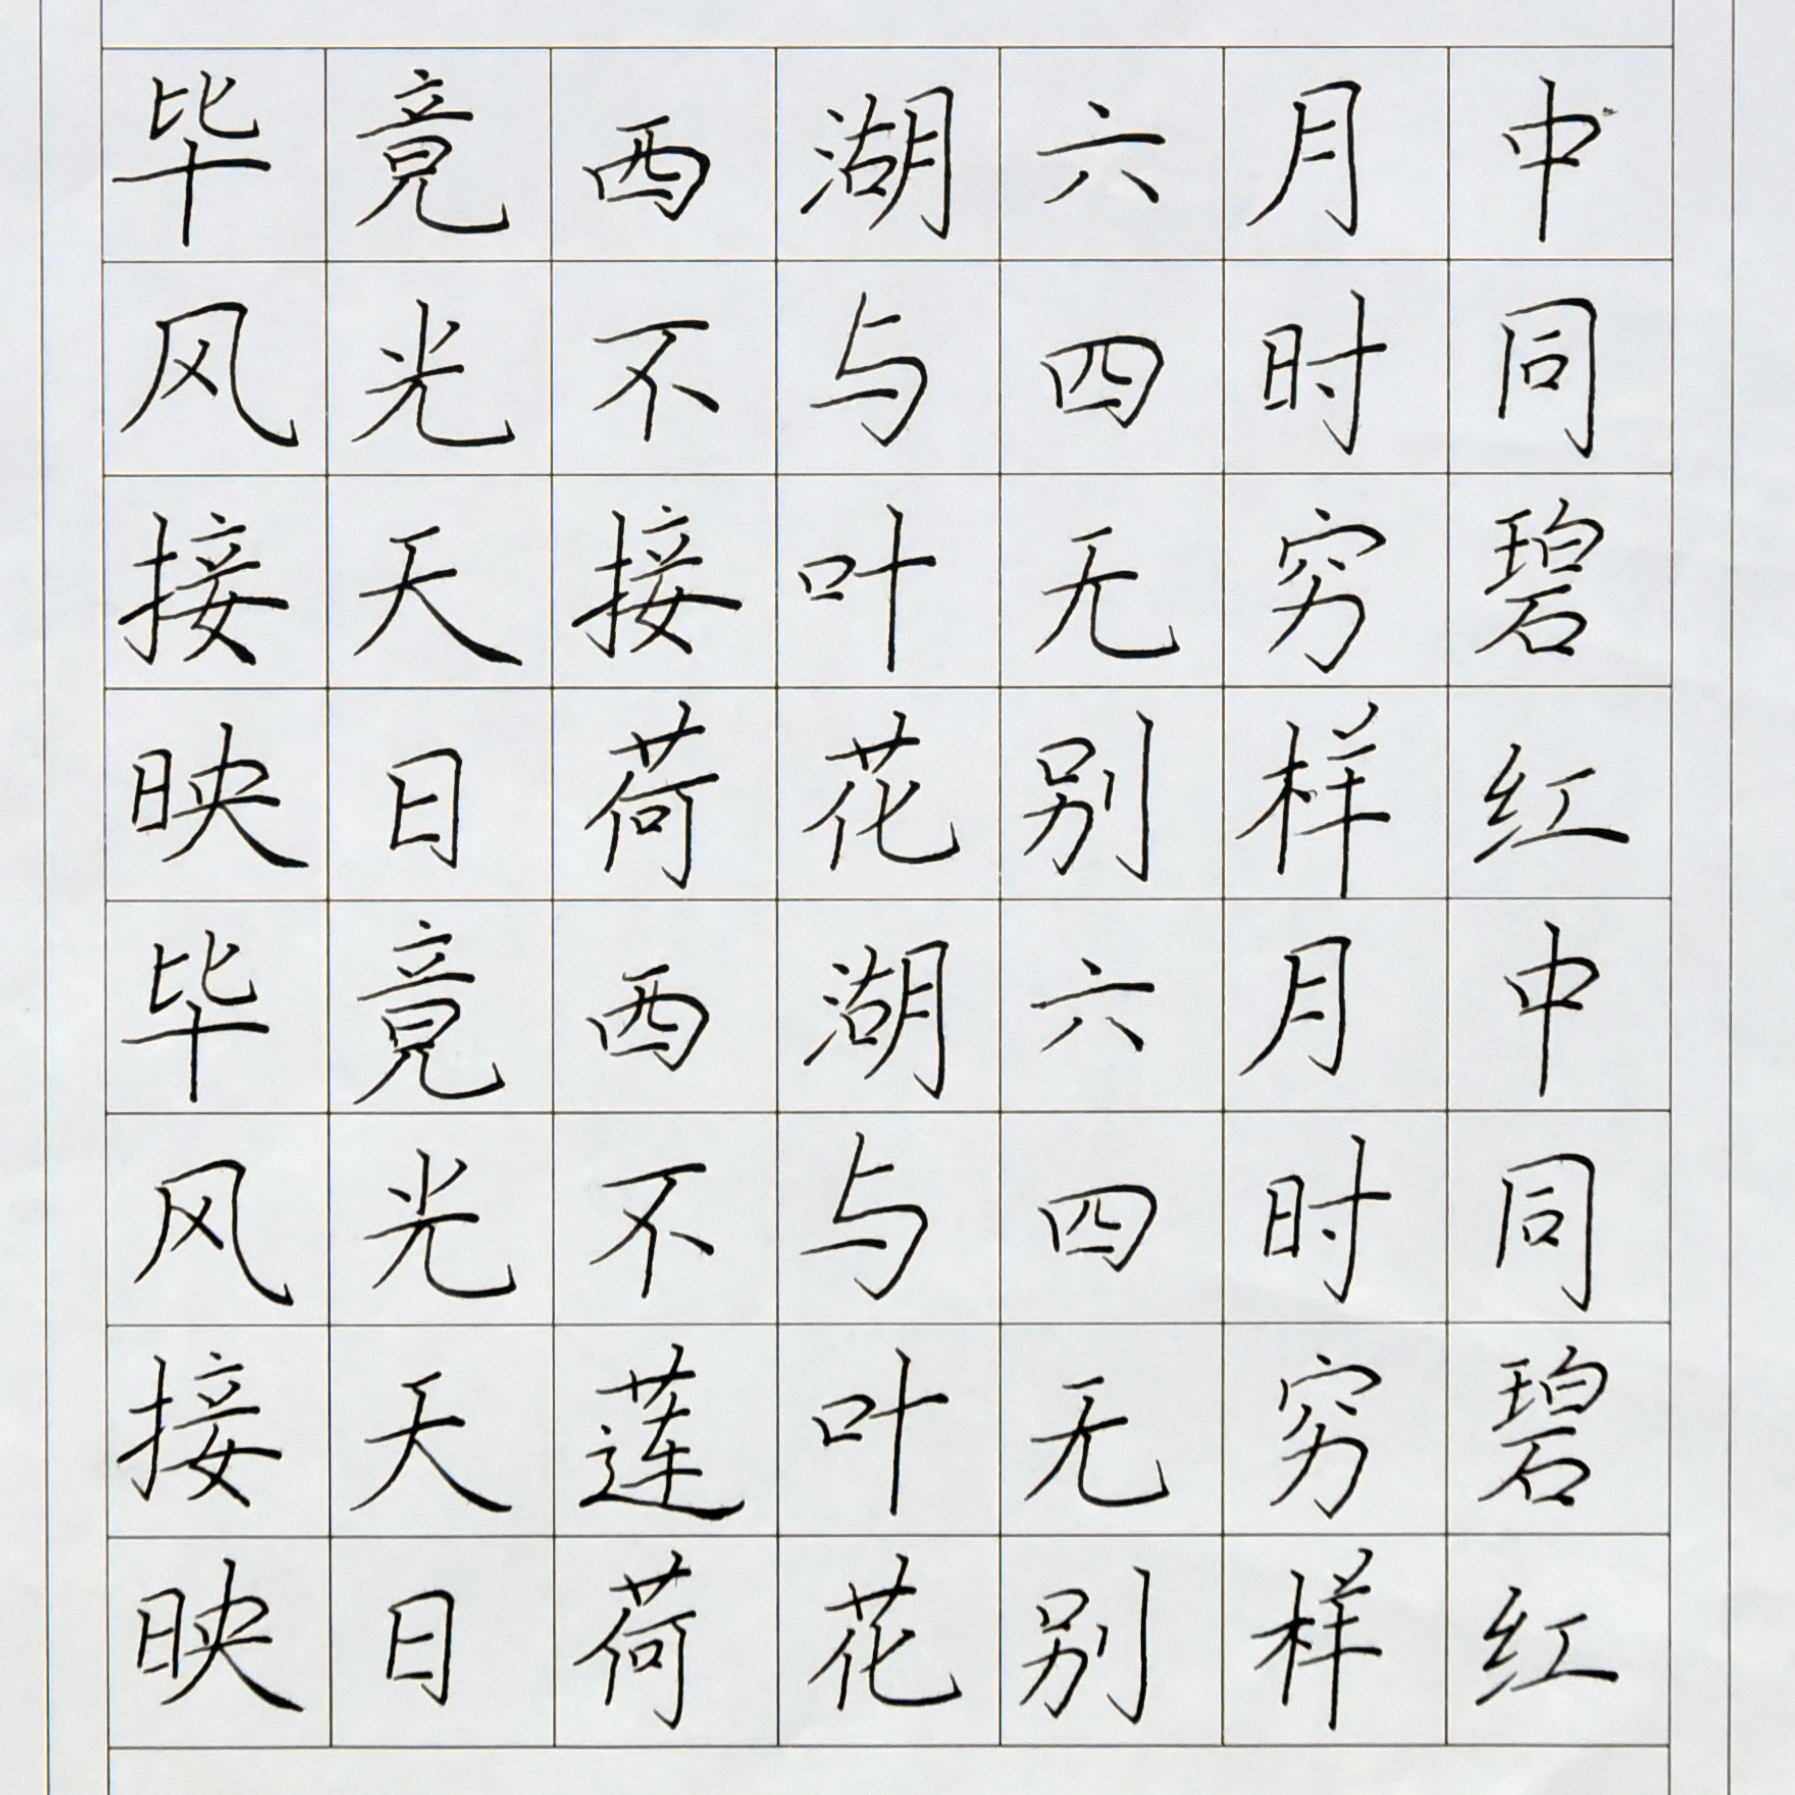 毕竟西湖六月中
风光不与四时同
接天接叶无穷碧
映日荷花别样红
毕竟西湖六月中
风光不与四时同
接天莲叶无穷碧
映日荷花别样红